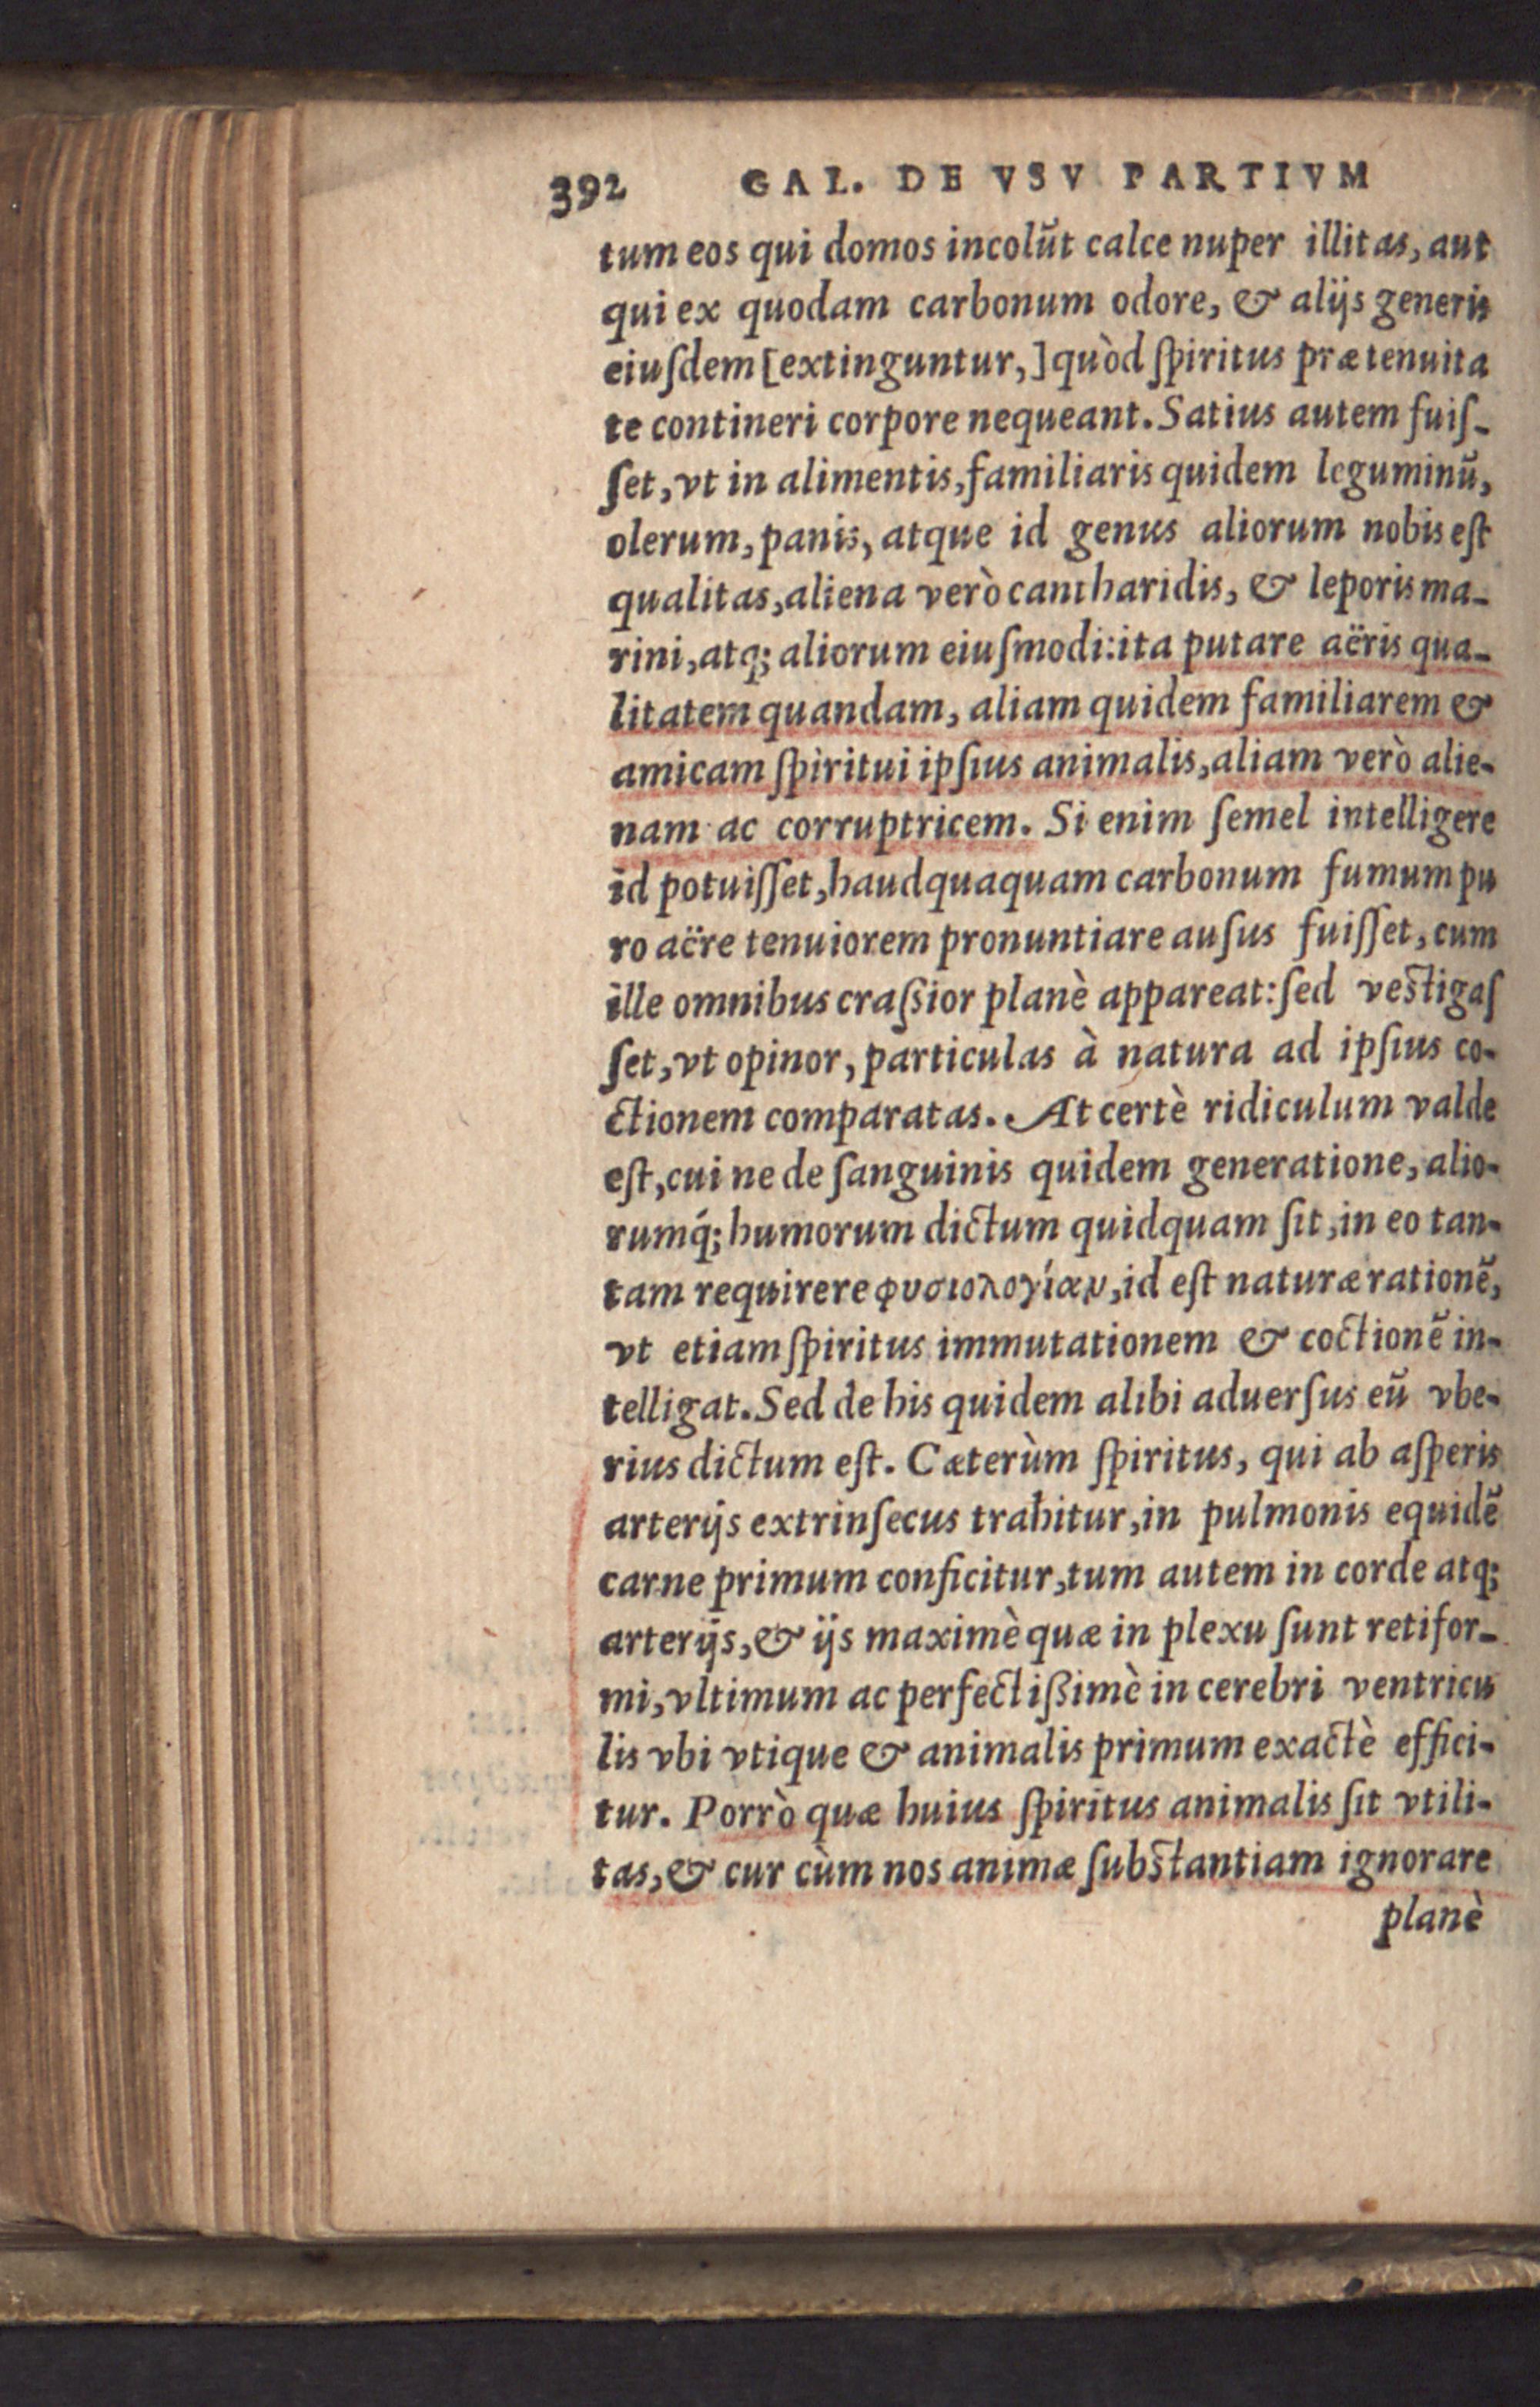 392 GAL. DE VSV PARTIVM
tum eos qui domos incolũt calce nuper illitas, aut
qui ex quodam carbonum odore, & alijs generis
eiuſdem [extinguntur,] quòd ſpiritus præ tenuita
te contineri corpore nequeant. Satius autem fuiſ-
ſet, vt in alimentis, familiaris quidem leguminũ,
olerum, panis, atque id genus aliorum nobis eſt
qualitas, aliena verò cantharidis, & leporis ma-
rini, atq; aliorum eiuſmodi: ita putare aëris qua-
litatem quandam, aliam quidem familiarem &
amicam ſpiritui ipſius animalis, aliam verò alie-
nam ac corruptricem. Si enim ſemel intelligere
id potuiſſet, haudquaquam carbonum fumum pu
ro aëre tenuiorem pronuntiare auſus fuiſſet, cum
ille omnibus craßior planè appareat: ſed veſtigaſ
ſet, vt opinor, particulas à natura ad ipſius co-
ctionem comparatas. At certè ridiculum valde
eſt, cui ne de ſanguinis quidem generatione, alio-
rumq́; humorum dictum quidquam ſit, in eo tan-
tam requirere φυσιολογίαν, id eſt naturæ rationẽ,
vt etiam ſpiritus immutationem & coctionẽ in-
telligat. Sed de his quidem alibi aduerſus eũ vbe-
rius dictum eſt. Cæterùm ſpiritus, qui ab aſperis
arterijs extrinſecus trahitur, in pulmonis equidẽ
carne primum conficitur, tum autem in corde atq;
arterijs, & ijs maximè quæ in plexu ſunt retifor-
mi, vltimum ac perfectißimè in cerebri ventricu
lis vbi vtique & animalis primum exactè effici-
tur. Porrò quæ huius ſpiritus animalis ſit vtili-
tas, & cur cùm nos animæ ſubſtantiam ignorare
planè